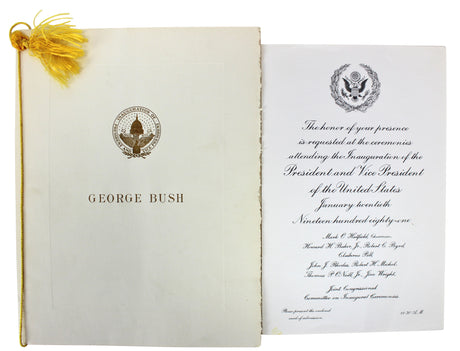 GEORGE BUSH
The honor of your presence
is requested at the ceremonies
attending the Inauguration of the
President and Vice President
of the United States
January twentieth
Nineteen hundred eighty-one
Mark O. Hatfield, Chairman,
Howard H. Baker Jr., Robert C. Byrd,
Claiborne Pell,
John J. Rhodes, Robert H. Michel,
Thomas P. O'Neill, Jr., Jim Wright,
Joint Congressional
Committee on Inaugural Ceremonies.
Please present the enclosed
card of admission.
A.M.